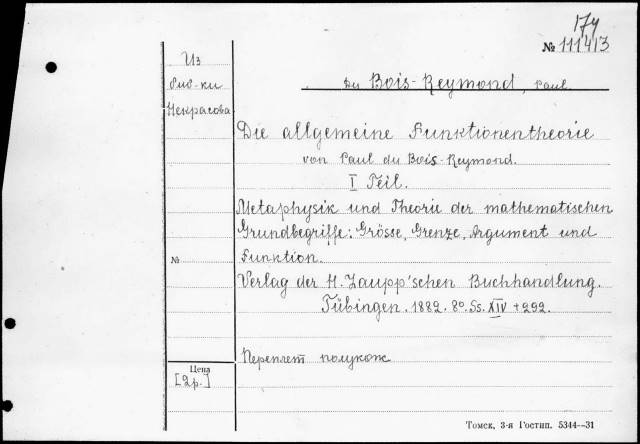 174
№ 111413
Из
биб-ки
Некрасова
Du Bois-Reymond, Paul.
Die allgemeine Funktionentheorie
von Paul du Bois-Reymond.
I Teil.
Metaphysik und Theorie der mathematischen
Grundbegriffe: Grösse, Grenze, Argument und
№ Funktion.
Verlag der H. Laupp'schen Buchhandlung.
Tübingen. 1882. 8º. Ss. XIV + 292.
Переплет полукож
Цена
[2р.]
Томск, 3-я Гостип. 5344—31